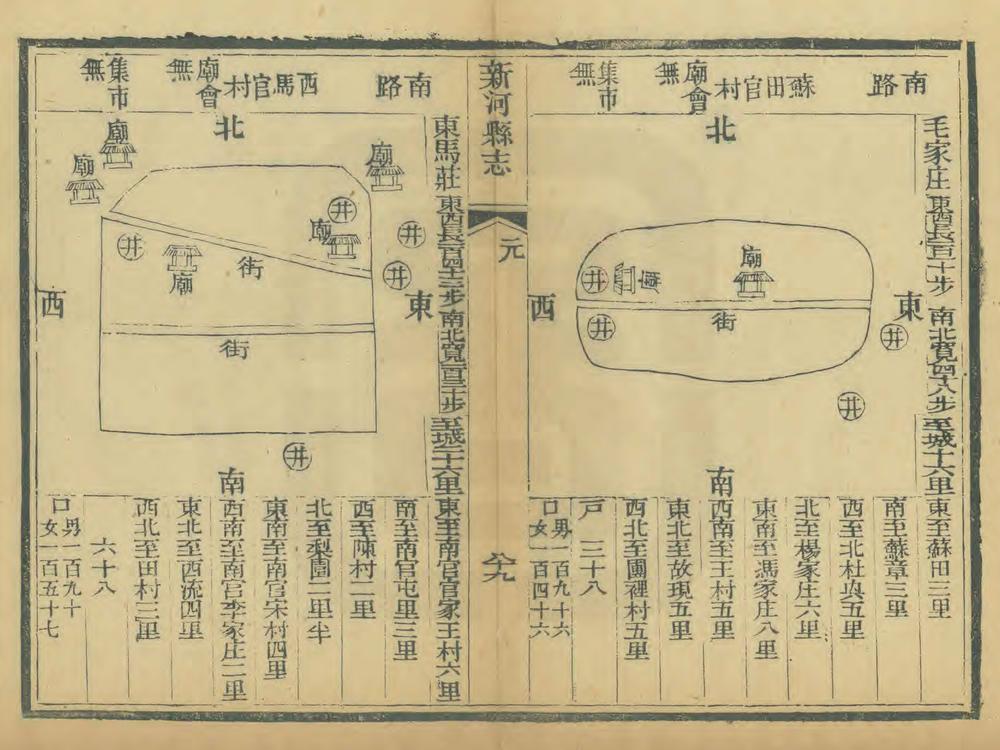 南路
蘇田官村
廟會無
集市無
毛家庄 東西長一百一十步 南北寬四十八步 至城十六里
北
東
西
南
廟
廟
街
井
井
井
井
東至蘇田三里
南至蘇章三里
西至北杜與五里
北至楊家庄六里
東南至馮家庄八里
西南至王村五里
東北至故現五里
西北至團裡村五里
戸 三十八
口 男一百九十六
女一百四十六
新河縣志
元
六十九
南路
西馬官村
廟會無
集市無
東馬莊 東西長一百四十三步 南北寬一百三十步 至城二十六里
北
東
西
南
廟
廟
廟
廟
廟
街
街
井
井
井
井
井
東至南官官家王村六里
南至南官屯里三里
西至陳村二里
北至梨園二里半
東南至南官宋村四里
西南至南宫李家庄二里
東北至西流四里
西北至田村三里
六十八
口 男一百九十
女一百五十七